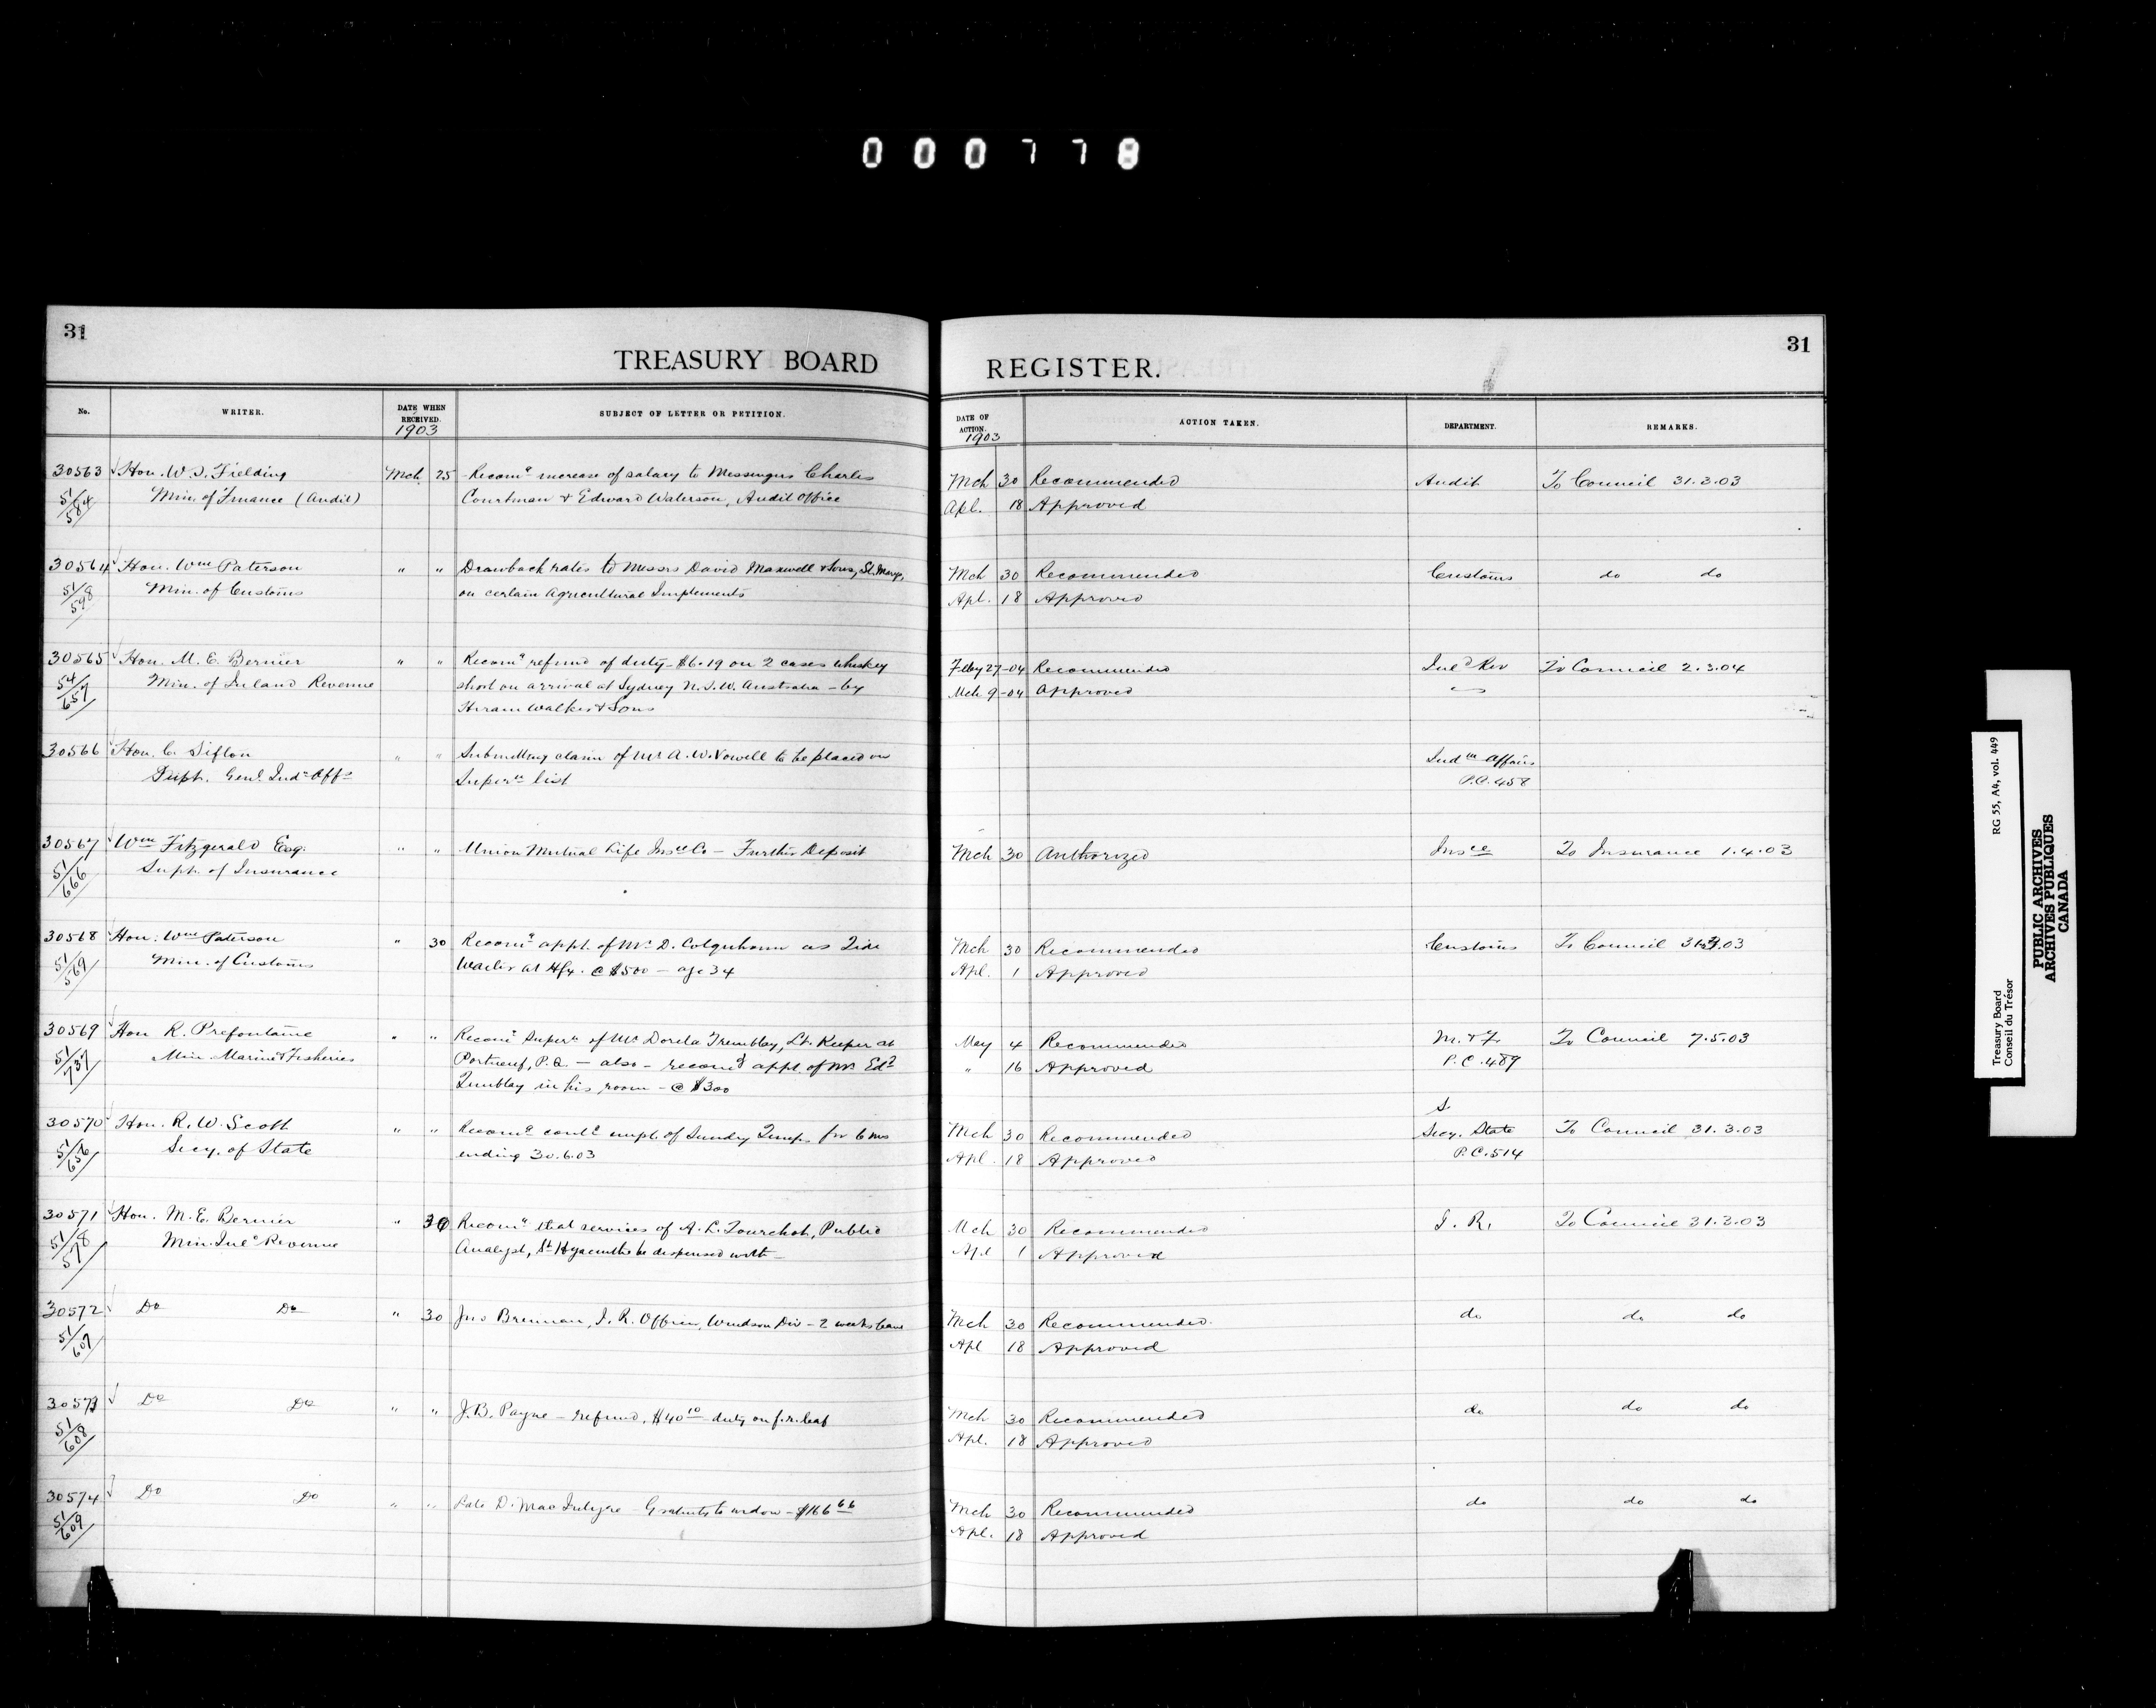 000778
31
TREASURY BOARD
No.
WRITER.
DATE WHEN RECEIVED.
1903
SUBJECT OF LETTER OR PETITION.
30563 Hon. W. S. Fielding Mch 25 Recomg increase of salary to Messengers Charles
51/584 Min. of Finance (Audit) Courtman & Edward Waterson, Audit Office
30564 Hon. Wm Paterson " " Drawback rates to Messrs David Maxwell & Sons, St. Marys,
51/598 Min. of Customs on certain Agricultural Implements
30565 Hon. M. E. Bernier " " Recomg refund of duty - $6.19 on 2 cases whiskey
54/657 Min. of Inland Revenue short on arrival at Sydney N.S.W. Australia - by
Hiram Walker & Sons
30566 Hon. C. Sifton " " Submitting claim of Mr A. W. Vowell to be placed on
Supt. Genl. Indn Affs Supern list
30567 Wm Fitzgerald Esq. " " Union Mutual Life Insce Co - Further Deposit
51/666 Supt. of Insurance
30568 Hon. Wm Paterson " 30 Recomg appt. of Mr D. Colquhoun as Tide
51/569 Min. of Customs Waiter at Hfx. @ $500 - age 34
30569 Hon R. Prefontaine " " Recomg Supern of Mr Dorila Tremblay, Lt. Keeper at
51/737 Min. Marine & Fisheries Portneuf, P.Q. - also - recomg appt. of Mr Edd
Tremblay in his room - @ $300
30570 Hon. R. W. Scott " " Recomg contd empt. of Sundry Temps. for 6 mos
51/656 Secy. of State ending 30.6.03
30571 Hon. M. E. Bernier " 30 Recomg that services of A. L. Tourchot, Public
51/578 Min. Inld Revenue Analyst, St Hyacinthe be dispensed with -
30572 Do Do " 30 Jno Brennan, I. R. Officer, Windsor Div - 2 weeks leave
51/607
30573 Do Do " " J. B. Payne - refund, $40.10 duty on f.r. leaf
51/608
30574 Do Do " " Late D. MacIntyre - Gratuity to widow - $166.66
51/609
31
REGISTER.
DATE OF ACTION.
1903
ACTION TAKEN.
DEPARTMENT.
REMARKS.
Mch 30 Recommended Audit To Council 31.3.03
Apl. 18 Approved
Mch 30 Recommended Customs do do
Apl. 18 Approved
Feby 27-04 Recommended Inld Rev To Council 2.3.04
Mch 9-04 Approved "
Indn Affairs
P.C. 458
Mch 30 Authorized Insce To Insurance 1.4.03
Mch 30 Recommended Customs To Council 31.3.03
Apl. 1 Approved
May 4 Recommended M. & F. To Council 7.5.03
" 16 Approved P.C. 489
S.
Mch 30 Recommended Secy. State To Council 31.3.03
Apl. 18 Approved P.C. 514
Mch 30 Recommended I. R. To Council 31.3.03
Apl 1 Approved
Mch 30 Recommended do do do
Apl 18 Approved
Mch 30 Recommended do do do
Apl. 18 Approved
Mch 30 Recommended do do do
Apl. 18 Approved
Treasury Board RG 55, A4, vol. 449
Conseil du Trésor
PUBLIC ARCHIVES
ARCHIVES PUBLIQUES
CANADA